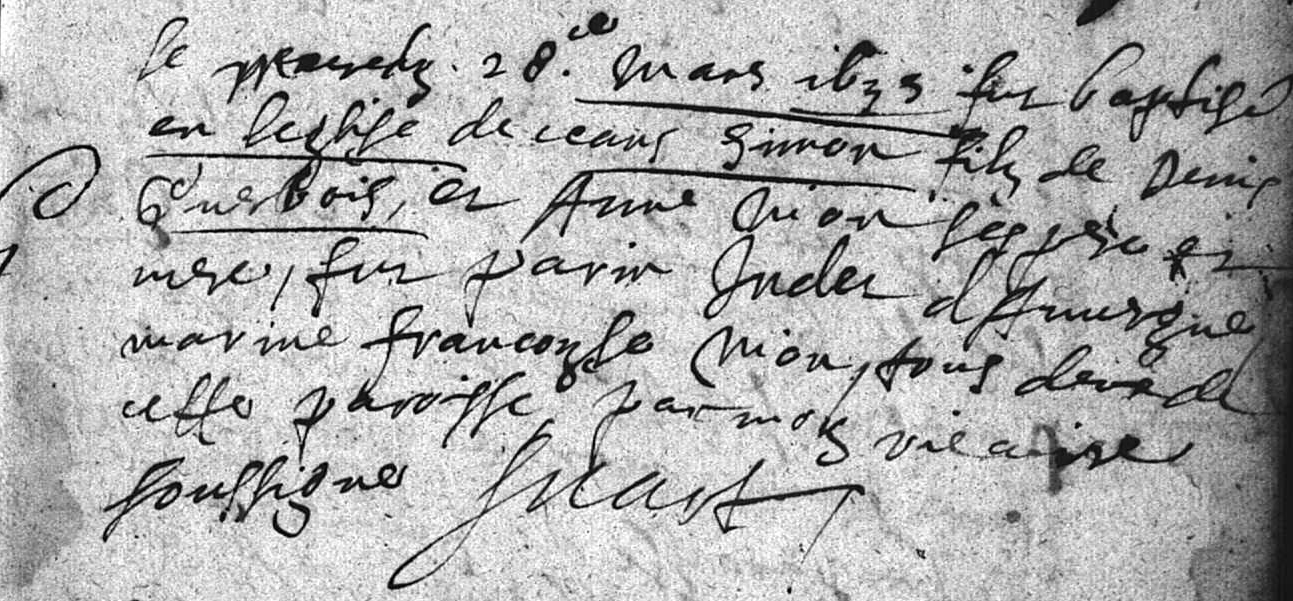 le mercredy 28.ce mars 1673 fut baptisé
en leglise de ceans Simon filz de Denis
Querbois, et Anne Nion ses pere et
mere, fut parin Judes d'Auvergne
marine francoyse Nion, tous deux de
cette paroisse par moy vicaire
soussigne